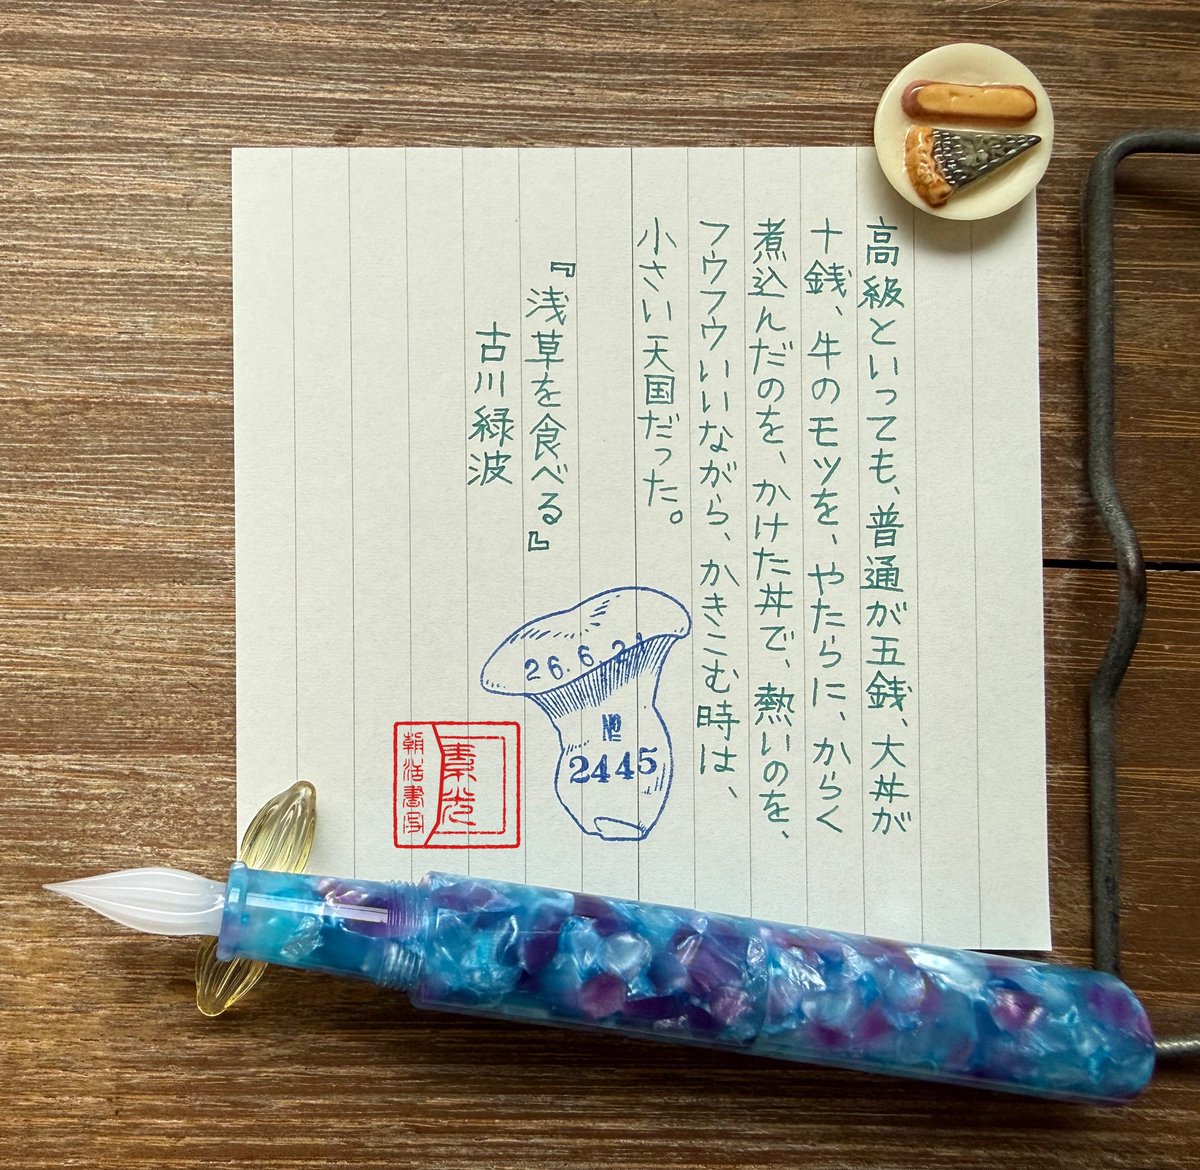 高級といっても、普通が五銭、大丼が
十銭、牛のモツを、やたらに、からく
煮込んだのを、かけた丼で、熱いのを、
フウフウいいながら、かきこむ時は、
小さい天国だった。
『浅草を食べる』
古川緑波
26.6.21
№
2445
素光
朝活書写